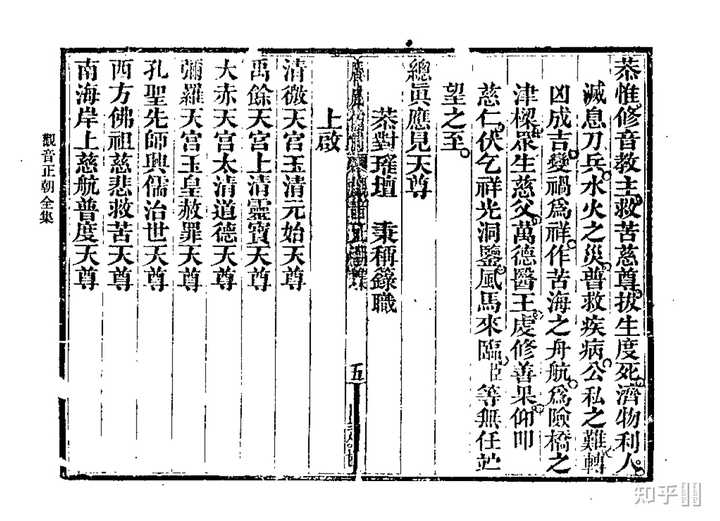 恭惟修音教主救苦慈尊拔生度死濟物利人
滅息刀兵水火之災普救疾病公私之難轉
凶成吉變禍為祥作苦海之舟航為險橋之
津樑眾生慈父萬德醫王虔修善果仰叩
慈仁伏乞祥光洞鑒風馬來臨臣等無任瞻
望之至
總真應見天尊
恭對瑤壇 秉稱籙職
上啟
五
清微天宮玉清元始天尊
禹餘天宮上清靈寶天尊
大赤天宮太清道德天尊
彌羅天宮玉皇赦罪天尊
孔聖先師興儒治世天尊
西方佛祖慈悲救苦天尊
南海岸上慈航普度天尊
觀音正朝全集
知乎